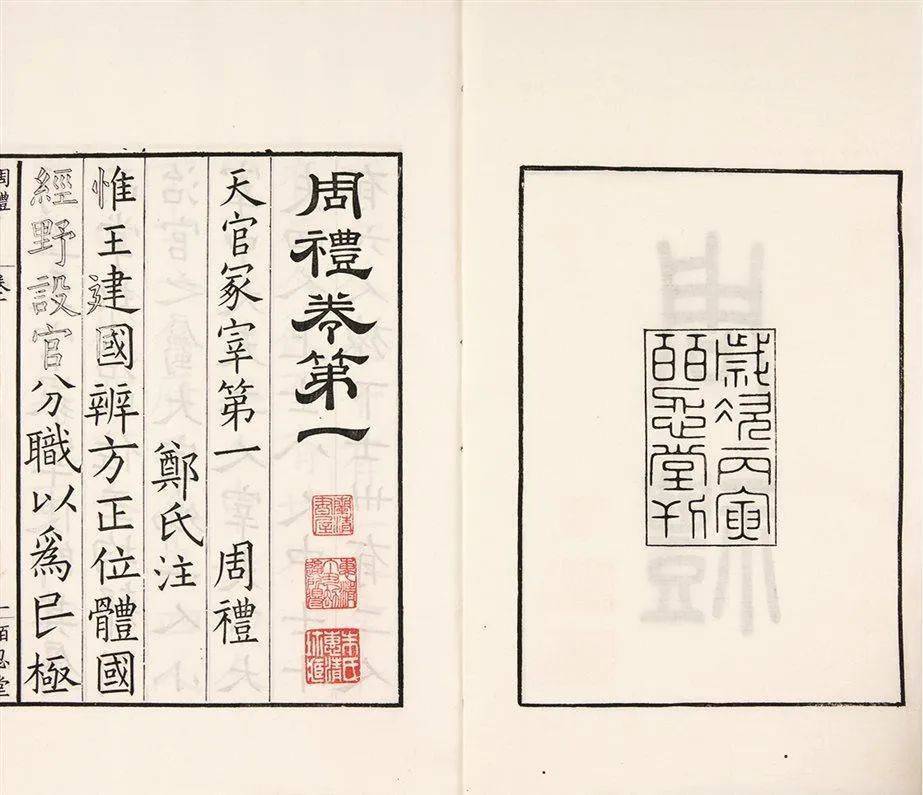 歲在丙寅
皕忍堂刊
周禮卷第一
天官冢宰第一 周禮
鄭氏注
惟王建國辨方正位體國
經野設官分職以爲民極
周禮 卷一
一 皕忍堂